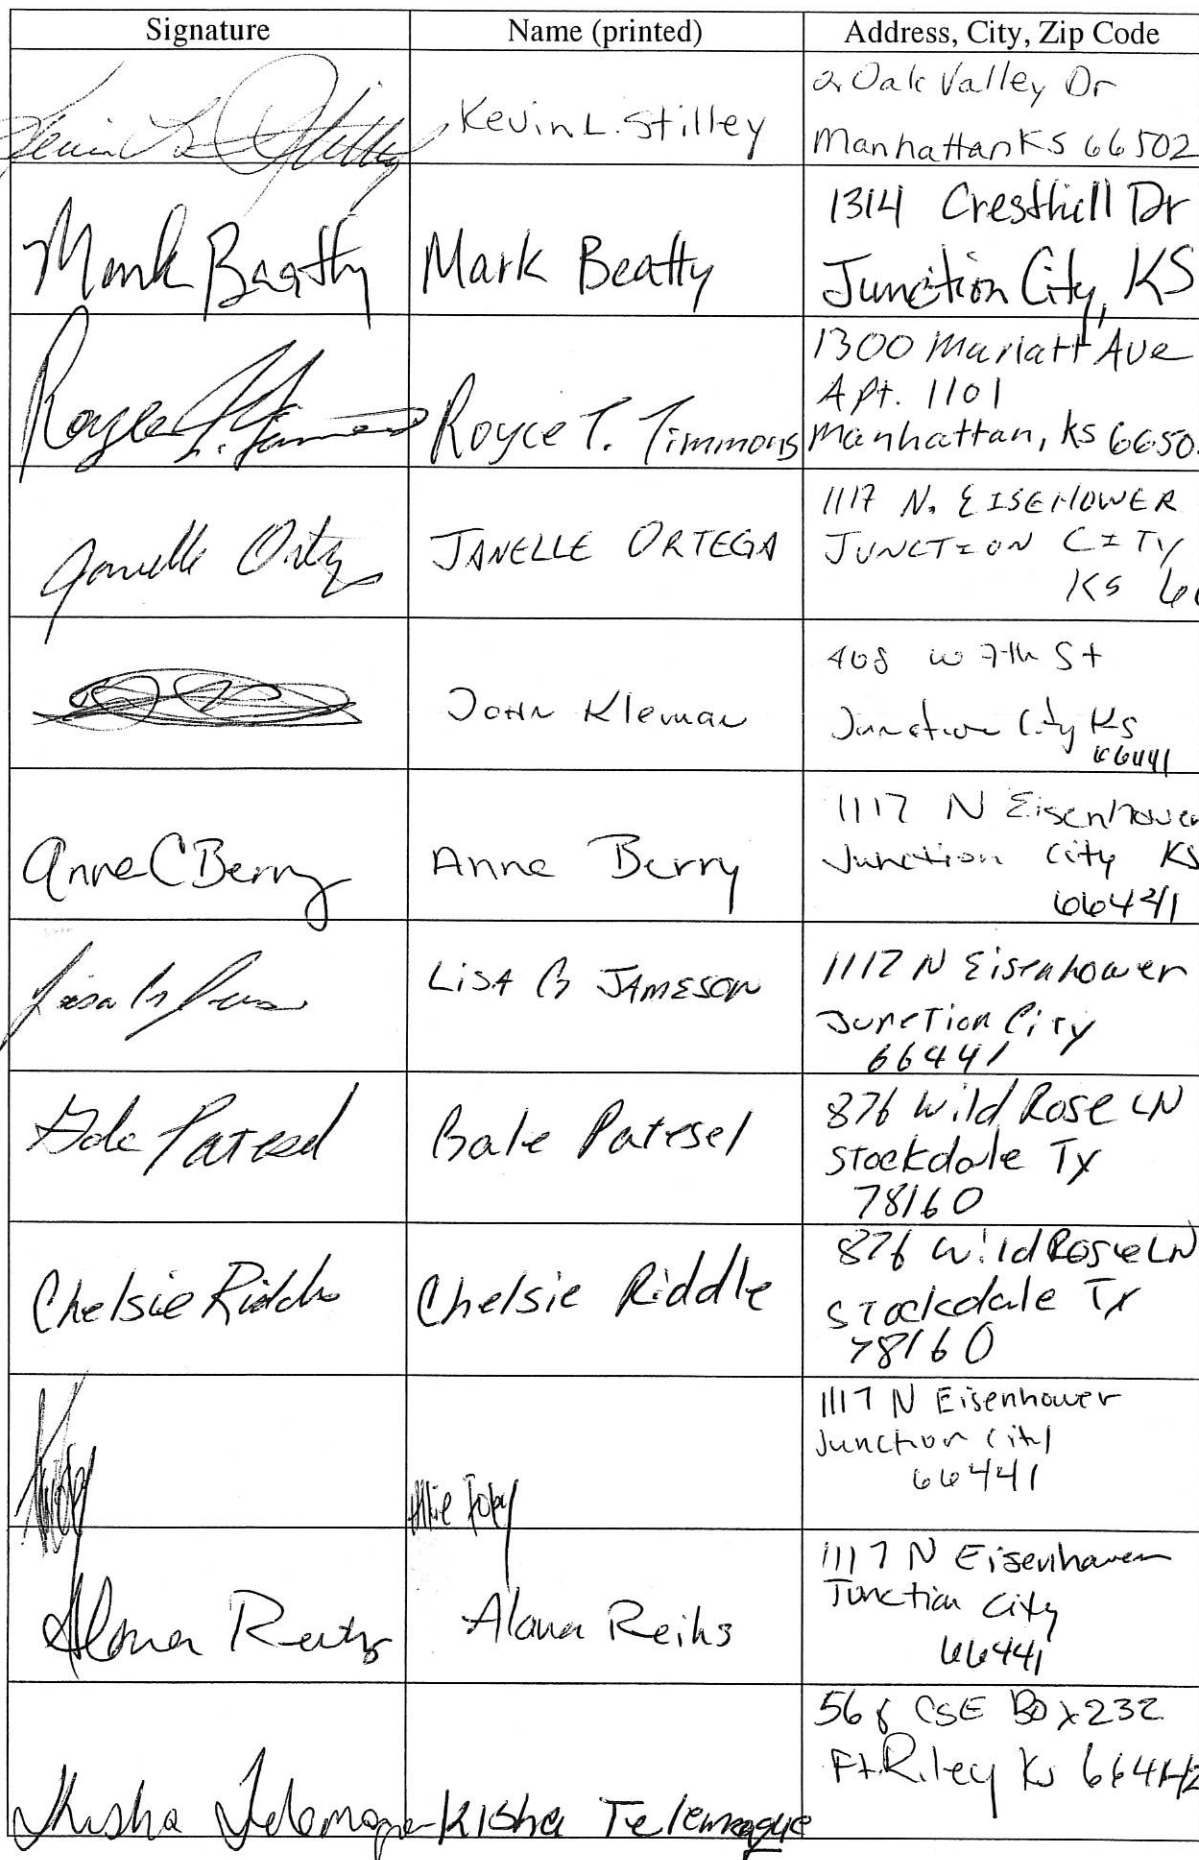 Signature Name (printed) Address, City, Zip Code
Kevin L. Stilley
2 Oak Valley Dr
Manhattan KS 66502
Mark Beatty Mark Beatty
1314 Cresthill Dr
Junction City, KS
Royce T. Timmons Royce T. Timmons
1300 Marlatt Ave
Apt. 1101
Manhattan, KS 6650
JANELLE ORTEGA
1117 N. EISEHOWER
JUNCTION CITY
KS
John Kleman
408 W 7th St
Junction City KS
66441
Anne C Berry Anne Berry
1117 N Eisenhower
Junction City KS
66441
LISA B JAMESON
1117 N Eisenhower
Junction City
66441
Patesel
876 Wild Rose LN
Stockdale TX
78160
Chelsie Riddle Chelsie Riddle
876 Wild Rose LN
Stockdale TX
78160
1117 N Eisenhower
Junction City
66441
Alana
1117 N Eisenhower
Junction City
66441
Kisha Telemaque Kisha Telemaque
CSE Box 232
Ft. Riley KS 66442